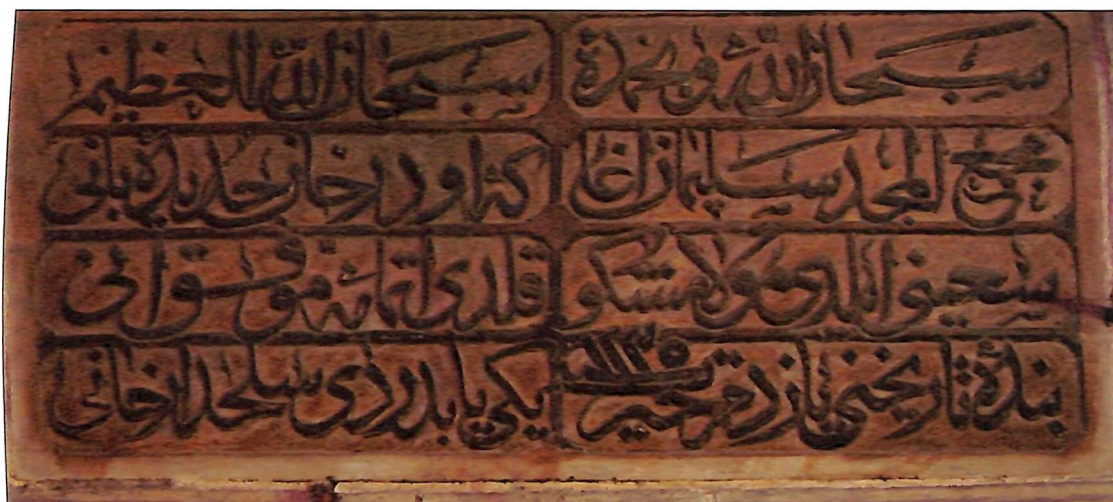 سبحان الله وبحمده سبحان الله العظيم
مجمع المجد سليمان اغا خان جديد بانى
سعينى ايلدى مولا مشكور قلدى اتمامنه موفق انى
بنده تاريخنى ياردم يكى يابدردى سلحدار خانى
١١٣٥